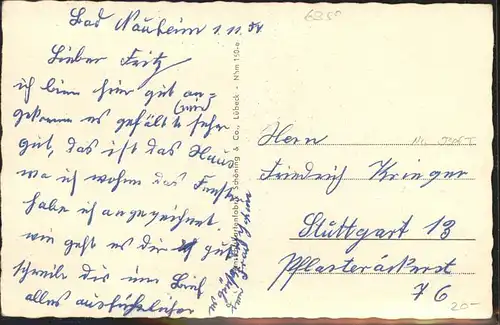 Bad Nauheim 1.11.54
6350
Lieber Fritz
ich bin hier gut an=
gekommen es gefällt (mir) sehr
gut, das ist das Haus
wo ich wohne das Fenster
habe ich angezeichnet.
wie geht es dir gut
schreibe dir im Brief
alles ausführlicher
es grüßt
Schöning & Co., Lübeck - Nhm 150-e
Hern
Friedrich Krieger
Stuttgart 13
Pflasteräckerst
76
20-